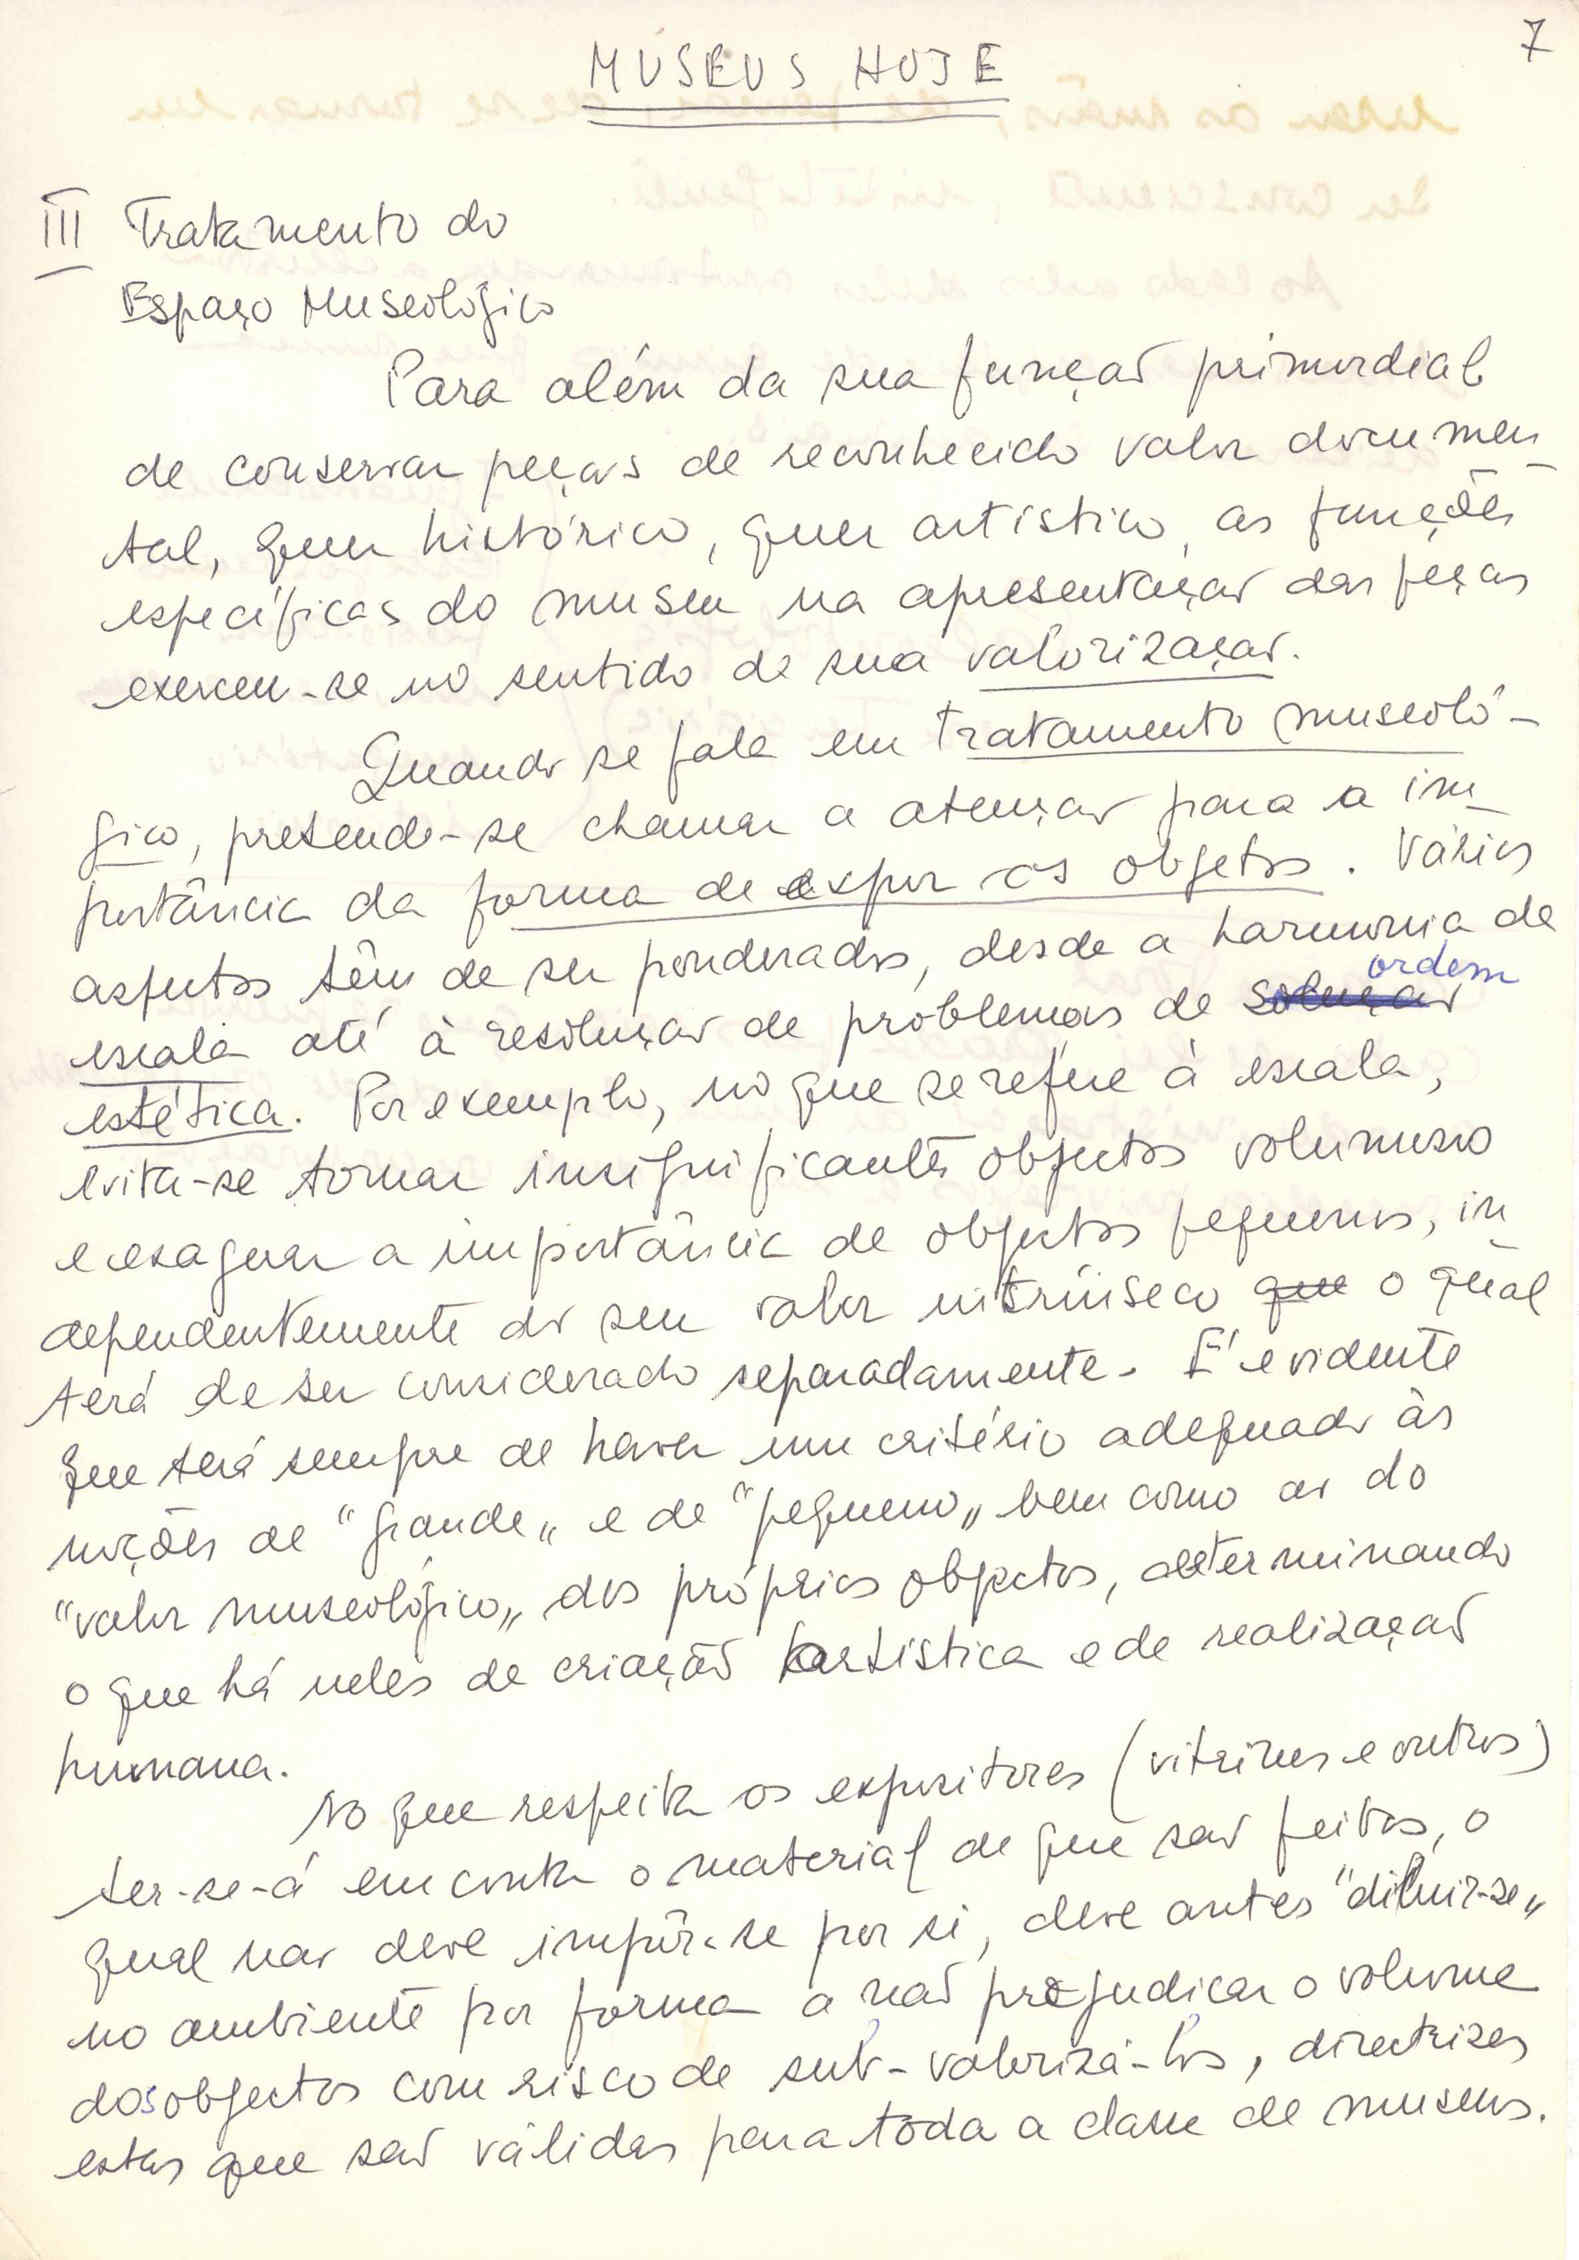 7
MUSEUS HOJE
III Tratamento do
Espaço Museológico
Para além da sua função primordial
de conservar peças de reconhecido valor documen
tal, quer histórico, quer artístico, as funções
específicas do museu na apresentação das peças
exercem-se no sentido de sua valorização.
Quando se fala em tratamento museoló-
gico, pretende-se chamar a atenção para a im
portância da forma de expor os objetos. Vários
aspectos têm de ser ponderados, desde a harmonia de
ordem
escala até à resolução de problemas de solução
estética. Por exemplo, no que se refere à escala,
evita-se tornar insignificantes objectos volumosos
e exagerar a importância de objectos pequenos, in
dependentemente do seu valor intrínseco que o qual
terá de ser considerado separadamente. É evidente
que terá sempre de haver um critério adequado às
noções de "grande" e de "pequeno" bem como ao do
"valor museológico" dos próprios objectos, determinando
o que há neles de criação artística e de realização
humana.
No que respeita os expositores (vitrines e outros)
ter-se-á em conta o material de que são feitos, o
qual não deve impôr-se por si, deve antes "diluir-se"
no ambiente por forma a não prejudicar o volume
dos objectos com risco de sub-valorizá-los, directrizes
estas que são válidas para toda a classe de museus.